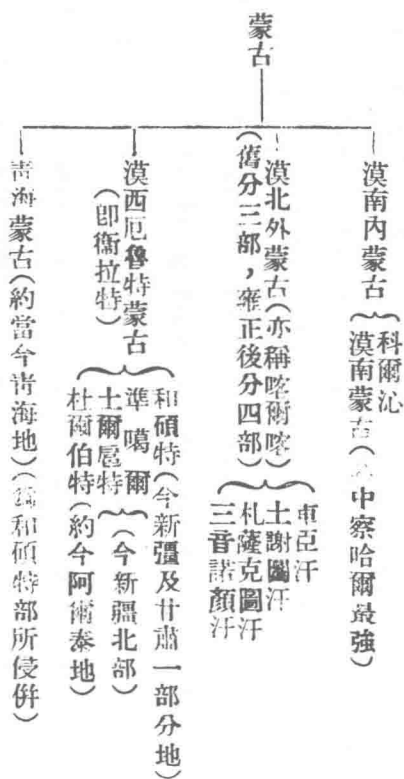 蒙古
漠南內蒙古
科爾沁
漠南蒙古(中察哈爾最強)
漠北外蒙古(亦稱喀爾喀)
(舊分三部,雍正後分四部)
車臣汗
土謝圖汗
札薩克圖汗
三音諾顏汗
漠西厄魯特蒙古
(即衞拉特)
和碩特(今新疆及甘肅一部分地)
準噶爾
土爾扈特
(今新疆北部)
杜爾伯特(約今阿爾泰地)
青海蒙古(約當今青海地)(爲和碩特部所侵併)